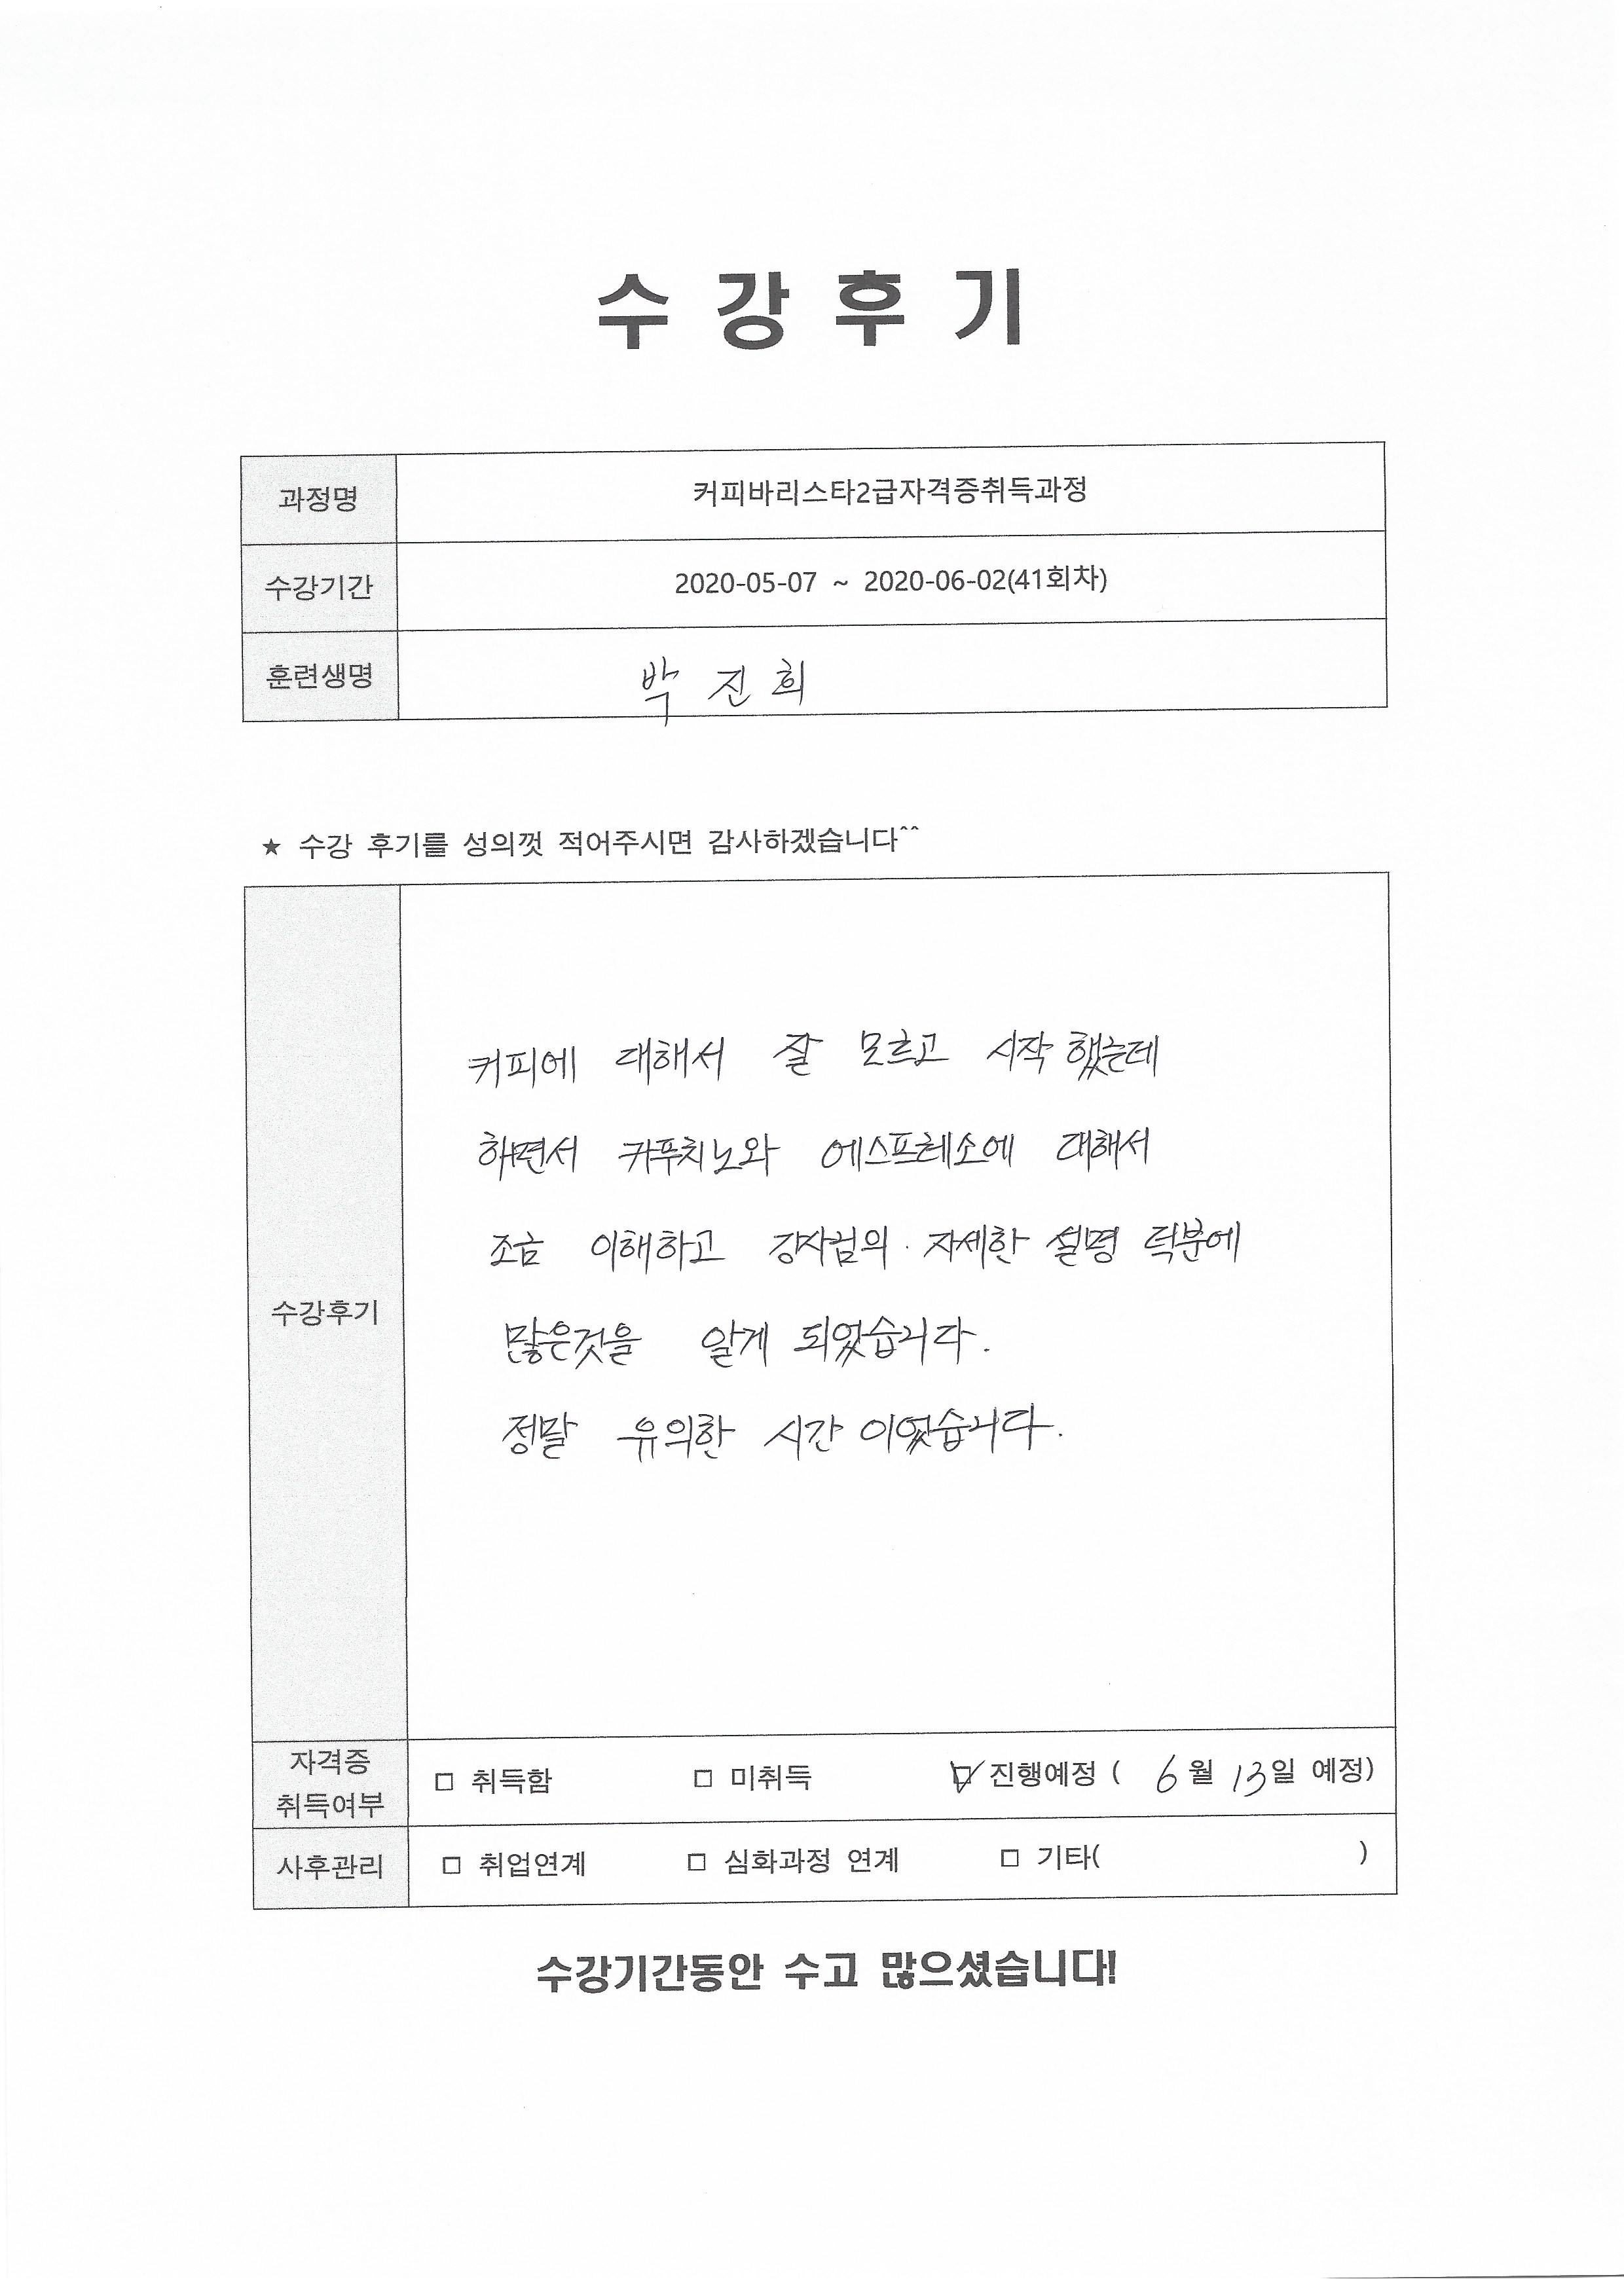 수 강 후 기
과정명 커피바리스타2급자격증취득과정
수강기간 2020-05-07 ~ 2020-06-02(41회차)
훈련생명 박 진 희
★ 수강 후기를 성의껏 적어주시면 감사하겠습니다^^
커피에 대해서 잘 모르고 시작 했는데
하면서 카푸치노와 에스프레소에 대해서
조금 이해하고 강사님의 자세한 설명 덕분에
수강후기
많은것을 알게 되었습니다.
정말 유의한 시간 이었습니다.
자격증
취득여부
□ 취득함 □ 미취득 ☑ 진행예정 ( 6월 13일 예정)
사후관리 □ 취업연계 □ 심화과정 연계 □ 기타( )
수강기간동안 수고 많으셨습니다!